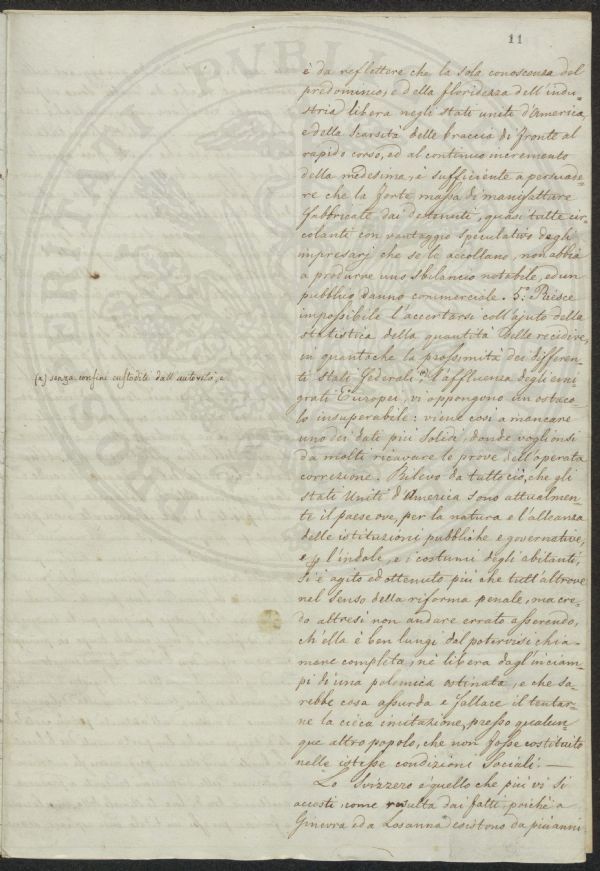 11
è da reflettere che la sola conoscenza del
predominio, e della floridezza dell'indu=
stria libera negli stati uniti d'America,
e della scarsità delle braccia di fronte al
rapido corso, ed al continuo incremento
della medesima, è sufficiente a persuade=
re che la forte massa di manifatture
fabbricate dai detenuti, quasi tutte cir=
colanti con vantaggio speculativo degli
impresarj che se le accollano, non abbia
a produrne uno sbilancio notabile, ed un
pubblico danno commerciale. 5.° Riesce
impossibile l'accertarsi coll'ajuto della
statistica della quantità delle recidive,
in quantoche la prossimità dei differen=
ti stati federali (a) l'affluenza degli emi
grati Europei, vi oppongono un ostaco=
lo insuperabile: viene così a mancare
uno dei dati più solidi, donde voglionsi
da molti ricavare le prove dell'operata
correzione. Rilevo da tutto ciò, che gli
stati Uniti d'America sono attualmen=
te il paese ove, per la natura e l'alleanza
delle istituzioni pubbliche e governative,
e l'indole, e i costumi degli abitanti,
si è agito ed ottenuto più che tutt'altrove
nel senso della riforma penale, ma cre=
do altresì non andare errato asserendo,
ch'ella è ben lungi dal potervisi chia=
mare completa, nè libera dagl'inciam=
pi di una polemica ostinata, e che sa=
rebbe cosa assurda e fallace il tentar=
ne la cieca imitazione, presso qualun=
que altro popolo, che non fosse costituito
nelle istesse condizioni sociali. —
Lo Svizzero è quello che più vi si
accosti, come resulta dai fatti, poichè a
Ginevra ed a Losanna esistono da più anni
(a) senza confini custoditi dall'autorità, e